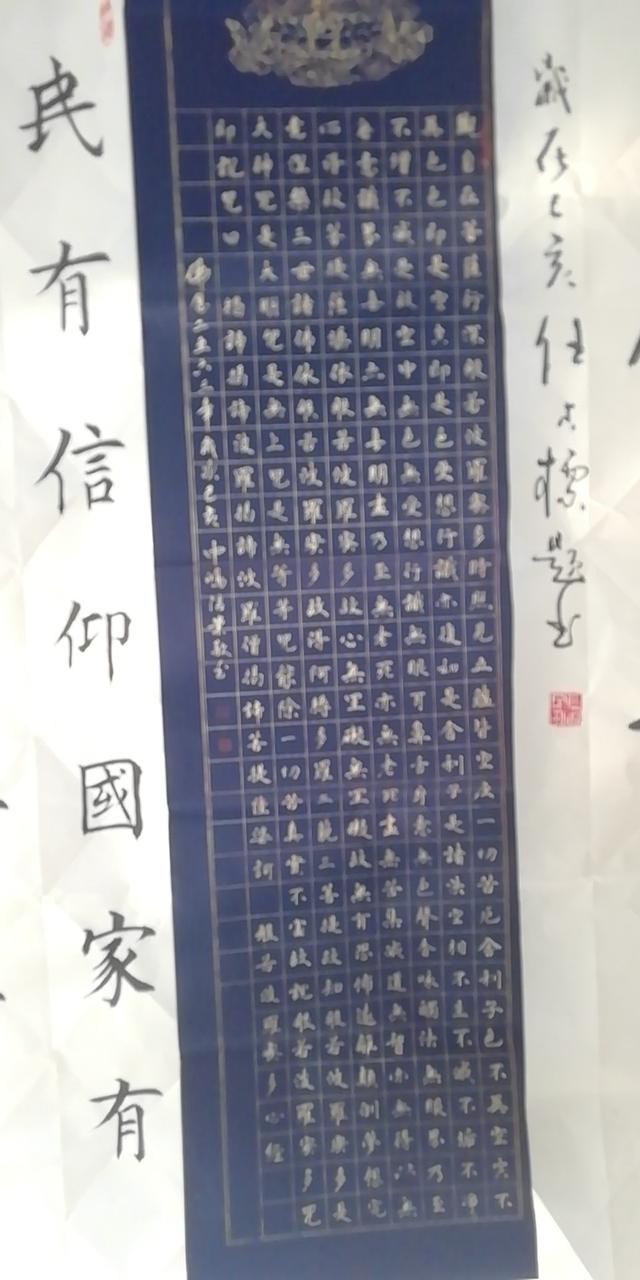 歲在己亥任標題书
觀自在菩薩行深般若波羅蜜多時照見五蘊皆空度一切苦厄舍利子色不異空空不
異色色即是空空即是色受想行識亦復如是舍利子是諸法空相不生不滅不垢不淨
不增不減是故空中無色無受想行識無眼耳鼻舌身意無色聲香味觸法無眼界乃至
無意識界無無明亦無無明盡乃至無老死亦無老死盡無苦集滅道無智亦無得以無
所得故菩提薩埵依般若波羅蜜多故心無罣礙無罣礙故無有恐怖遠離顛倒夢想究
竟涅槃三世諸佛依般若波羅蜜多故得阿耨多羅三藐三菩提故知般若波羅蜜多是
大神咒是大明咒是無上咒是無等等咒能除一切苦真實不虛故說般若波羅蜜多咒
即說咒曰 揭諦揭諦波羅揭諦波羅僧揭諦菩提薩婆訶 般若波羅蜜多心經
佛曆二五六三年歲次己亥
民有信仰國家有